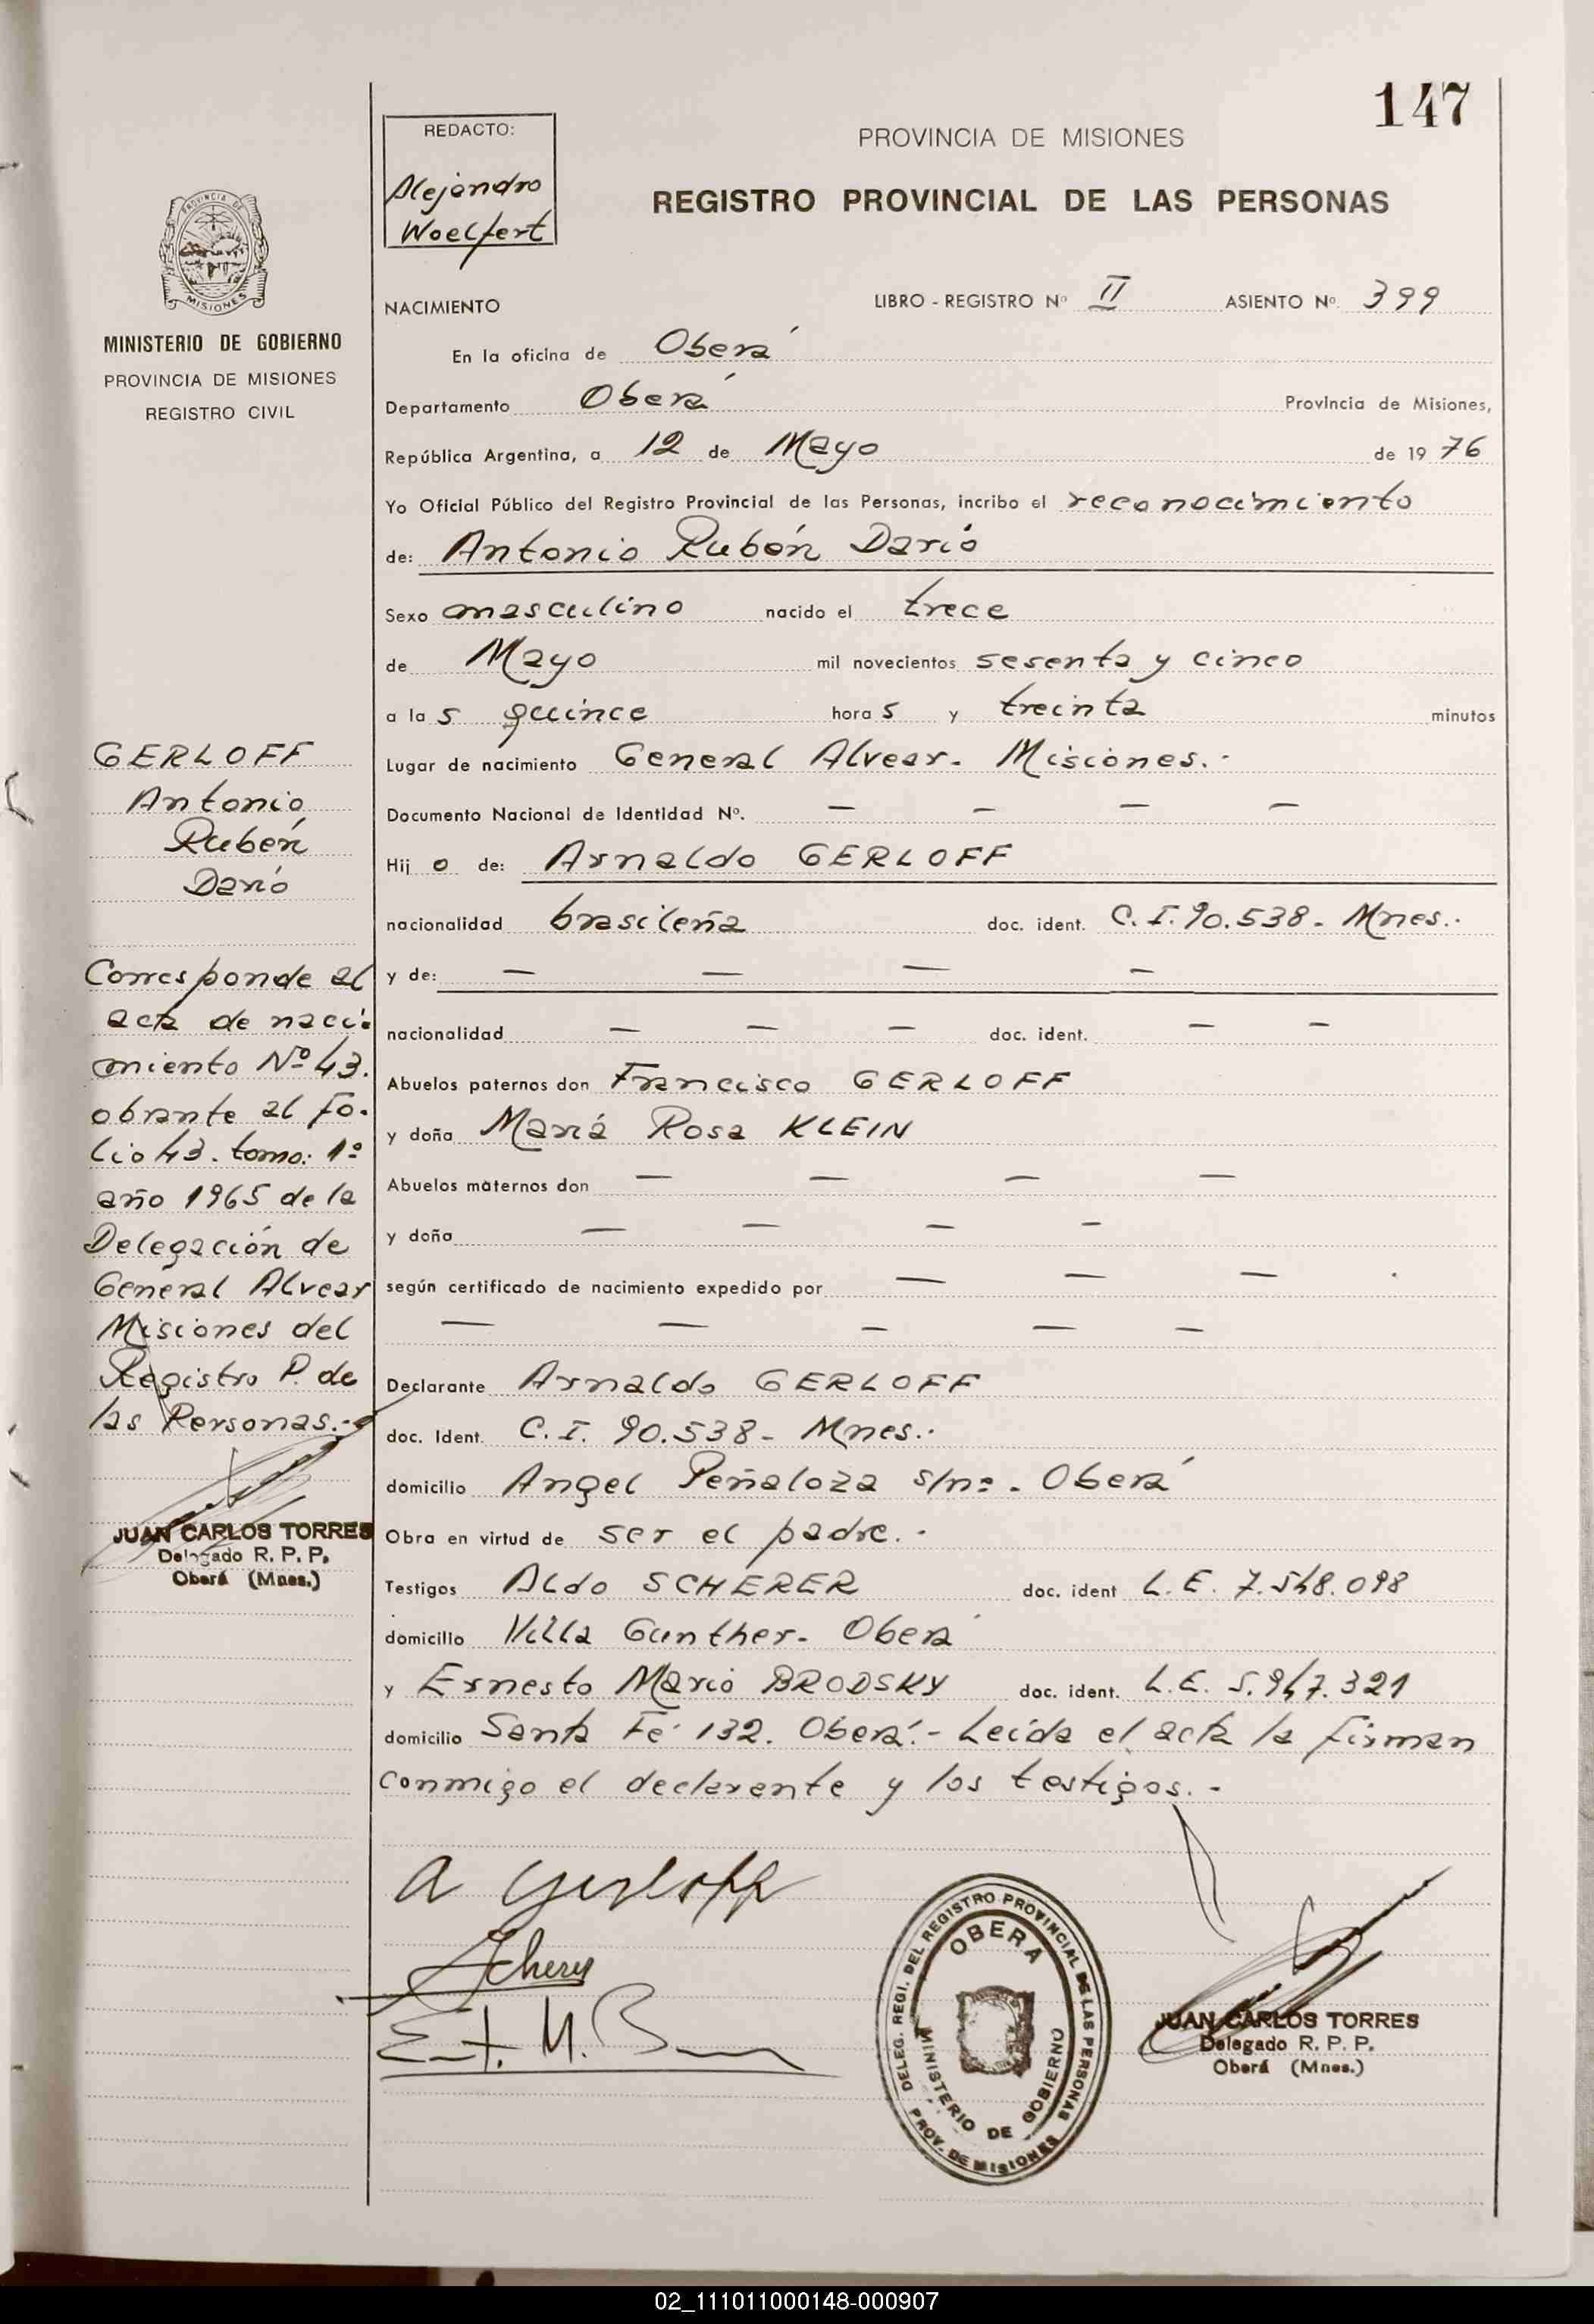 147
REDACTO:
Alejandro
Woelfert
PROVINCIA DE MISIONES
REGISTRO PROVINCIAL DE LAS PERSONAS
PROVINCIA DE
MISIONES
MINISTERIO DE GOBIERNO
PROVINCIA DE MISIONES
REGISTRO CIVIL
NACIMIENTO LIBRO - REGISTRO Nº II ASIENTO Nº. 399
En la oficina de Oberá
Departamento Oberá Provincia de Misiones,
República Argentina, a 12 de Mayo de 19 76
Yo Oficial Público del Registro Provincial de las Personas, incribo el reconocimiento
de: Antonio Rubén Darío
Sexo masculino nacido el trece
de Mayo mil novecientos sesenta y cinco
a la s quince hora s y treinta minutos
Lugar de nacimiento General Alvear. Misiones.-
Documento Nacional de Identidad Nº. — — — —
Hij o de: Arnaldo GERLOFF
nacionalidad brasileña doc. ident. C.I. 90.538. Mnes.-
y de: — — — —
nacionalidad — — — doc. ident. — —
Abuelos paternos don Francisco GERLOFF
y doña María Rosa KLEIN
Abuelos maternos don — — — —
y doña — — — —
según certificado de nacimiento expedido por — — —
— — — — —
Declarante Arnaldo GERLOFF
doc. Ident. C.I. 90.538- Mnes.-
domicilio Angel Peñaloza s/nº. Oberá
Obra en virtud de ser el padre.-
Testigos Aldo SCHERER doc. ident L.E. 7.548.098
domicilio Villa Gunther- Oberá
y Ernesto Mario BRODSKY doc. ident. L.E. 5.947.321
domicilio Santa Fé 132. Oberá.- Leída el acta la firman
conmigo el declarante y los testigos.-
GERLOFF
Antonio
Rubén
Darío
Corresponde al
acta de naci-
miento Nº 43.
obrante al fo-
lio 43. tomo: 1º
año 1965 de la
Delegación de
General Alvear
Misiones del
Registro P. de
las Personas.-
JUAN CARLOS TORRES
Delegado R. P. P.
Oberá (Mnes.)
A Gerloff
Scherer
DELEG. REGI. DEL REGISTRO PROVINCIAL DE LAS PERSONAS
OBERA
MINISTERIO DE GOBIERNO
PROV. DE MISIONES
JUAN CARLOS TORRES
Delegado R. P. P.
Oberá (Mnes.)
02_111011000148-000907